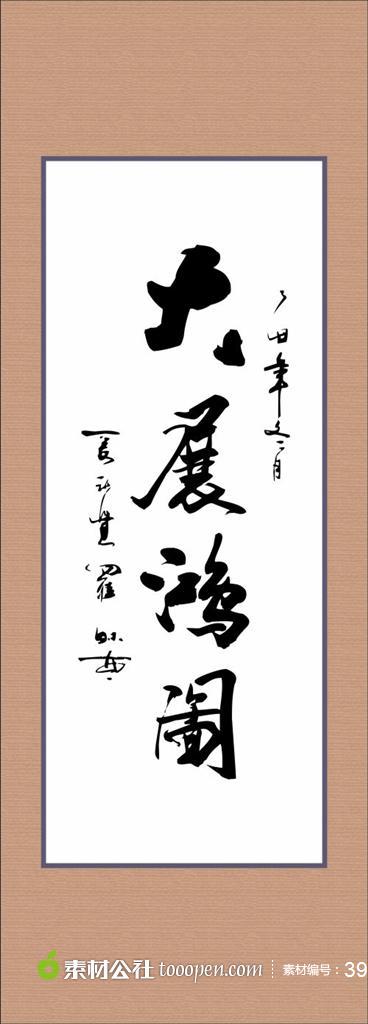 丁丑年又二月
大展鸿圖
素材公社 tooopen.com 素材编号：39